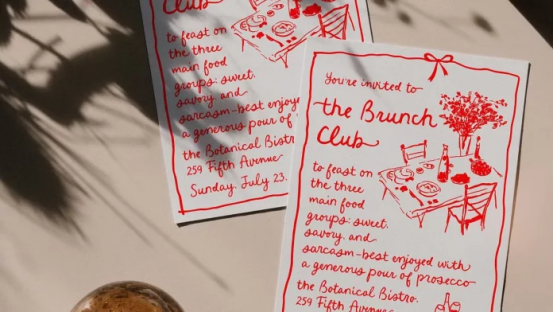 Club
to feast on
the three
main food
groups: sweet,
savory, and
sarcasm-best enjoye
a generous pour of
the Botanical Bistr
259 Fifth Avenue
Sunday, July 23.
You're invited to
the Brunch
Club
to feast on
the three
main food
groups: sweet,
savory, and
sarcasm-best enjoyed with
a generous pour of prosecco
the Botanical Bistro.
259 Fifth Avenue